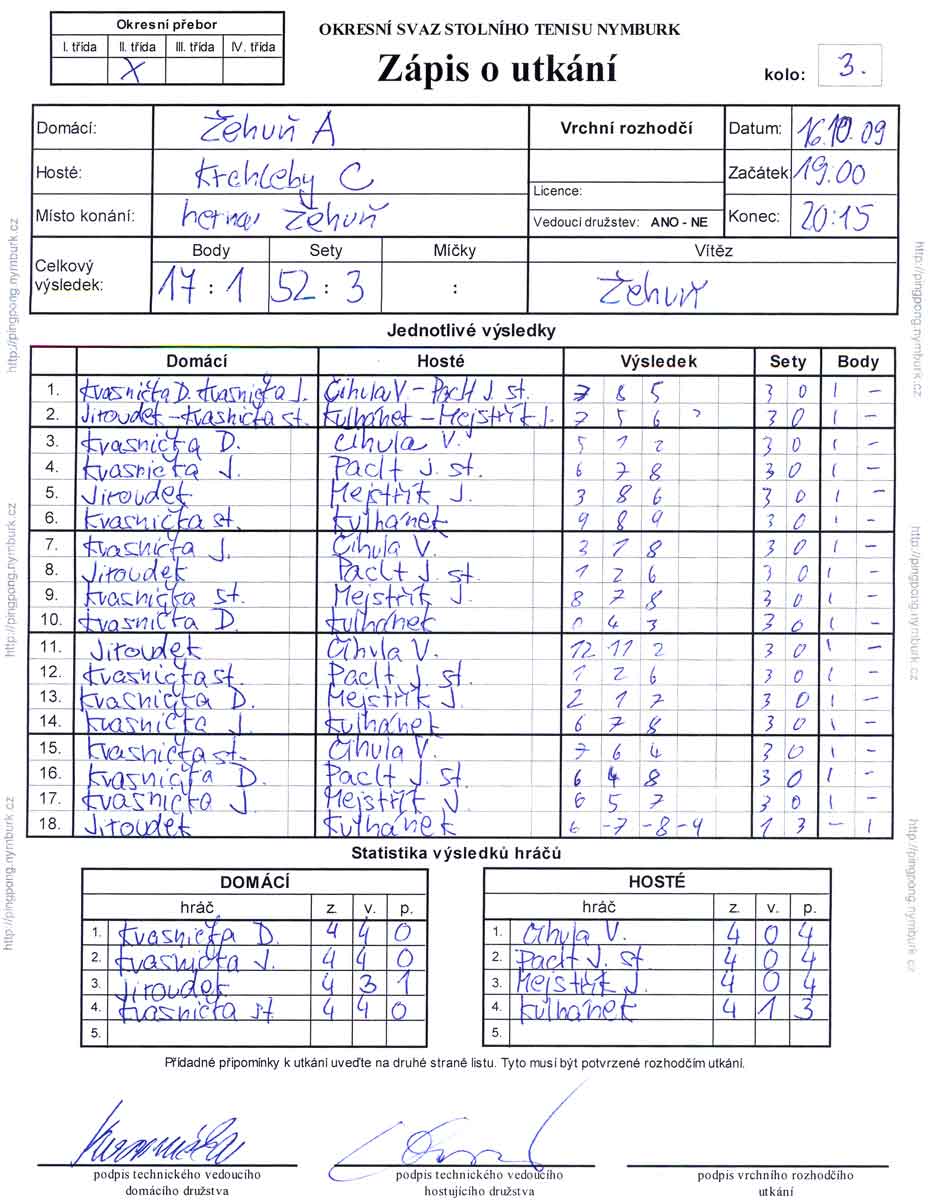 Okresní přebor
I. třída II. třída III. třída IV. třída
X
OKRESNÍ SVAZ STOLNÍHO TENISU NYMBURK
Zápis o utkání
kolo: 3.
Domácí: Žehuň A
Vrchní rozhodčí
Datum: 16.10.09
Hosté: Krchleby C
Licence:
Začátek 19:00
Místo konání: herna Žehuň
Vedoucí družstev: ANO - NE
Konec: 20:15
Celkový výsledek:
Body Sety Míčky Vítěz
17 : 1 52 : 3 : Žehuň
Jednotlivé výsledky
Domácí Hosté Výsledek Sety Body
1. Kvasnička D. Kvasnička J. Čihula V. - Paclt J. st. 7 8 5 3 0 1 -
2. Jiroudek - Kvasnička st. Kulhánek - Mejstřík J. 7 5 6 3 0 1 -
3. Kvasnička D. Čihula V. 5 1 2 3 0 1 -
4. Kvasnička J. Paclt J. st. 6 7 8 3 0 1 -
5. Jiroudek Mejstřík J. 3 8 6 3 0 1 -
6. Kvasnička st. Kulhánek 9 8 9 3 0 1 -
7. Kvasnička J. Čihula V. 3 1 8 3 0 1 -
8. Jiroudek Paclt J. st. 1 2 6 3 0 1 -
9. Kvasnička st. Mejstřík J. 8 7 8 3 0 1 -
10. Kvasnička D. Kulhánek 0 4 3 3 0 1 -
11. Jiroudek Čihula V. 12 11 2 3 0 1 -
12. Kvasnička st. Paclt J. st. 1 2 6 3 0 1 -
13. Kvasnička D. Mejstřík J. 2 1 7 3 0 1 -
14. Kvasnička J. Kulhánek 6 7 8 3 0 1 -
15. Kvasnička st. Čihula V. 7 6 4 3 0 1 -
16. Kvasnička D. Paclt J. st. 6 4 8 3 0 1 -
17. Kvasnička J. Mejstřík J. 6 5 7 3 0 1 -
18. Jiroudek Kulhánek 6 -7 -8 -4 1 3 - 1
Statistika výsledků hráčů
DOMÁCÍ
hráč z. v. p.
1. Kvasnička D. 4 4 0
2. Kvasnička J. 4 4 0
3. Jiroudek 4 3 1
4. Kvasnička st. 4 4 0
5.
HOSTÉ
hráč z. v. p.
1. Čihula V. 4 0 4
2. Paclt J. st. 4 0 4
3. Mejstřík J. 4 0 4
4. Kulhánek 4 1 3
5.
Přídadné připomínky k utkání uveďte na druhé straně listu. Tyto musí být potvrzené rozhodčím utkání.
podpis technického vedoucího
domácího družstva
podpis technického vedoucího
hostujícího družstva
podpis vrchního rozhodčího
utkání
http://pingpong.nymburk.cz
http://pingpong.nymburk.cz
http://pingpong.nymburk.cz
http://pingpong.nymburk.cz
http://pingpong.nymburk.cz
http://pingpong.nymburk.cz